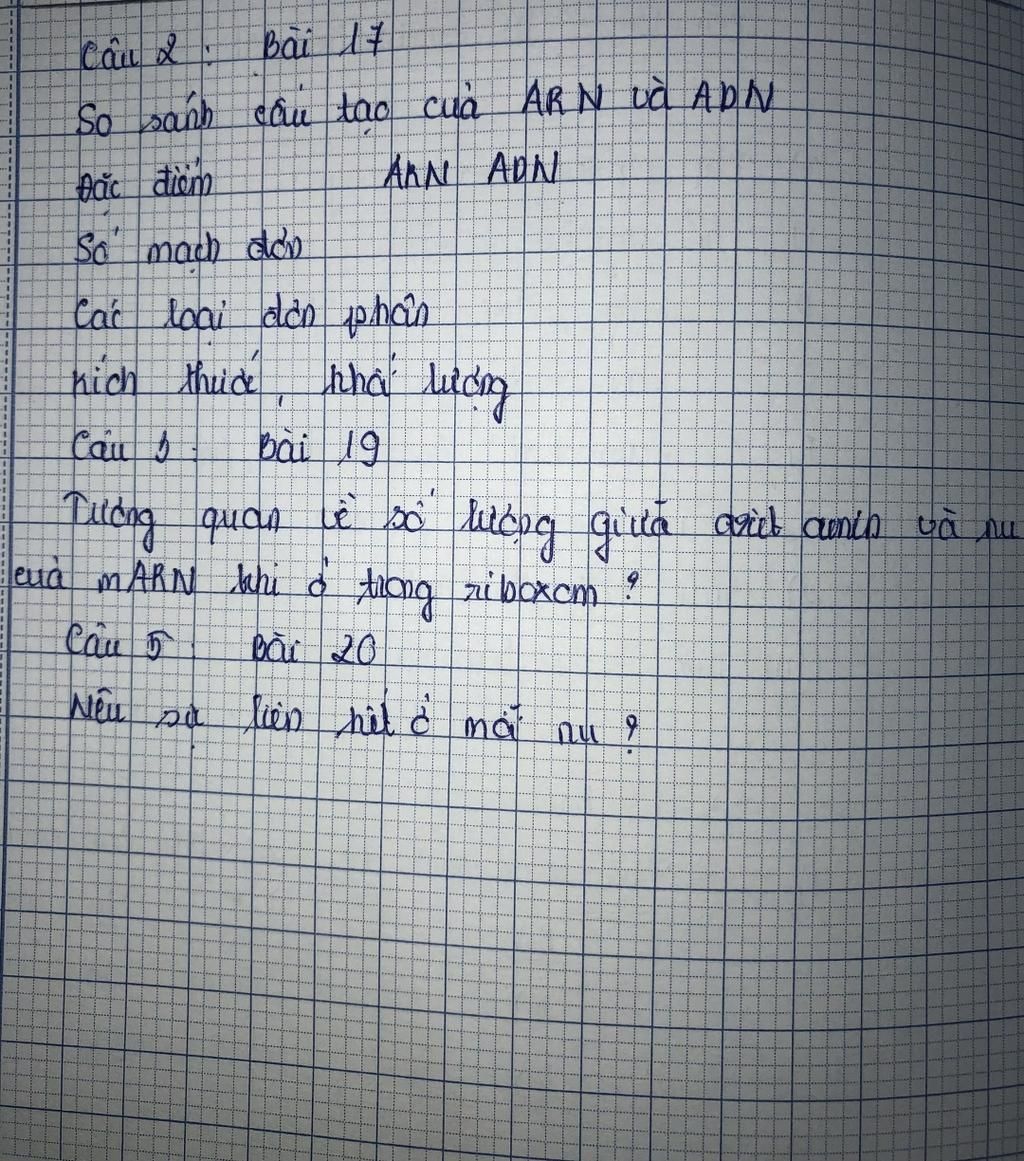 Câu 2 : Bài 17
So sánh cấu tạo của ARN và ADN
Đặc điểm ARN ADN
Số mạch đơn
Các loại đơn phân
Kích thước, khố lượng
Câu 3 : Bài 19
Tương quan về số lượng giữa axit amin và nu
của mARN khi ở trong riboxom ?
Câu 5 : Bài 20
Nêu sự liên kết ở mỗi nu ?